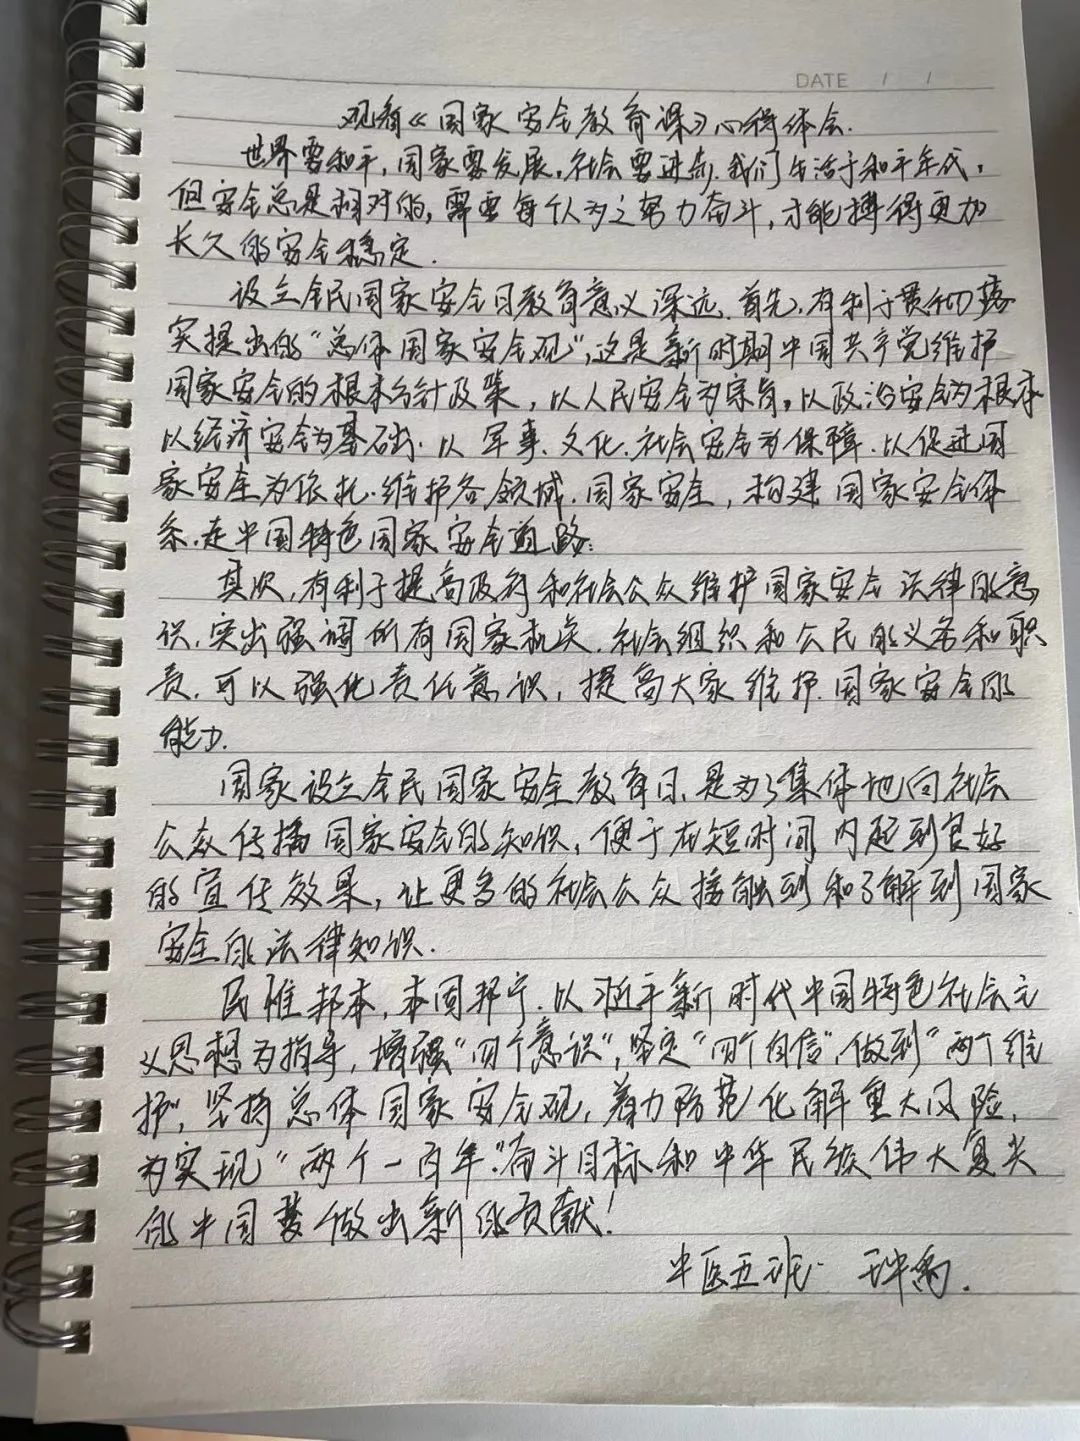 DATE / /
观看《国家安全教育课》心得体会.
世界要和平,国家要发展,社会要进步.我们生活于和平年代,
但安全总是相对的,需要每个人为之努力奋斗,才能搏得更加
长久的安全稳定.
设立全民国家安全日教育意义深远.首先,有利于贯彻落
实提出的“总体国家安全观”,这是新时期中国共产党维护
国家安全的根本方针政策,以人民安全为宗旨,以政治安全为根本
以经济安全为基础.以军事、文化、社会安全为保障.以促进国
家安全为依托.维护各领域.国家安全,构建国家安全体
系.走中国特色国家安全道路.
其次,有利于提高政府和社会公众维护国家安全法律的意
识,突出强调所有国家机关.社会组织和公民的义务和职
责.可以强化责任意识,提高大家维护国家安全的
能力.
国家设立全民国家安全教育日,是为了集体地向社会
公众传播国家安全的知识,便于在短时间内起到良好
的宣传效果,让更多的社会公众接触到和了解到国家
安全的法律知识.
民惟邦本,本固邦宁.以习近平新时代中国特色社会主
义思想为指导,增强“四个意识”,坚定“四个自信”,做到“两个维
护”,坚持总体国家安全观,着力防范化解重大风险,
为实现“两个一百年”奋斗目标和中华民族伟大复兴
的中国梦做出新的贡献!
中医五班